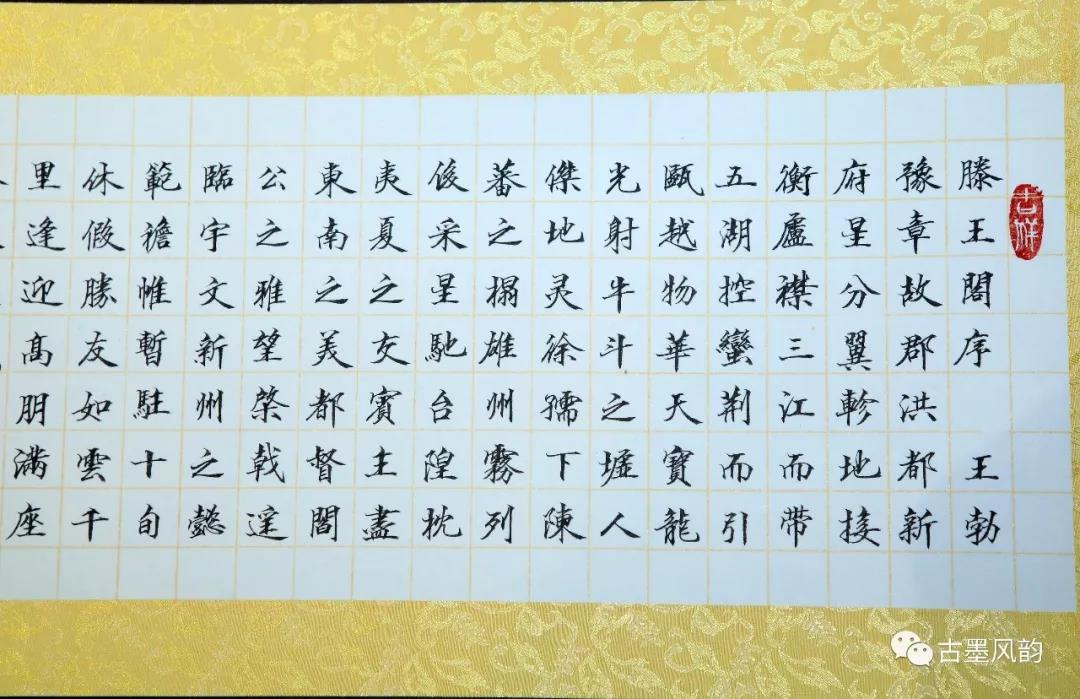 滕王閣序 王勃
豫章故郡洪都新
府星分翼軫地接
衡廬襟三江而带
五湖控蠻荆而引
甌越物華天寶龍
光射牛斗之墟人
傑地灵徐孺下陳
蕃之榻雄州霧列
俊采星馳台隍枕
夷夏之交賓主盡
東南之美都督閻
公之雅望棨戟遥
臨宇文新州之懿
範襜帷暫駐十旬
休假勝友如雲千
里逢迎高朋满座
吉祥
古墨风韵